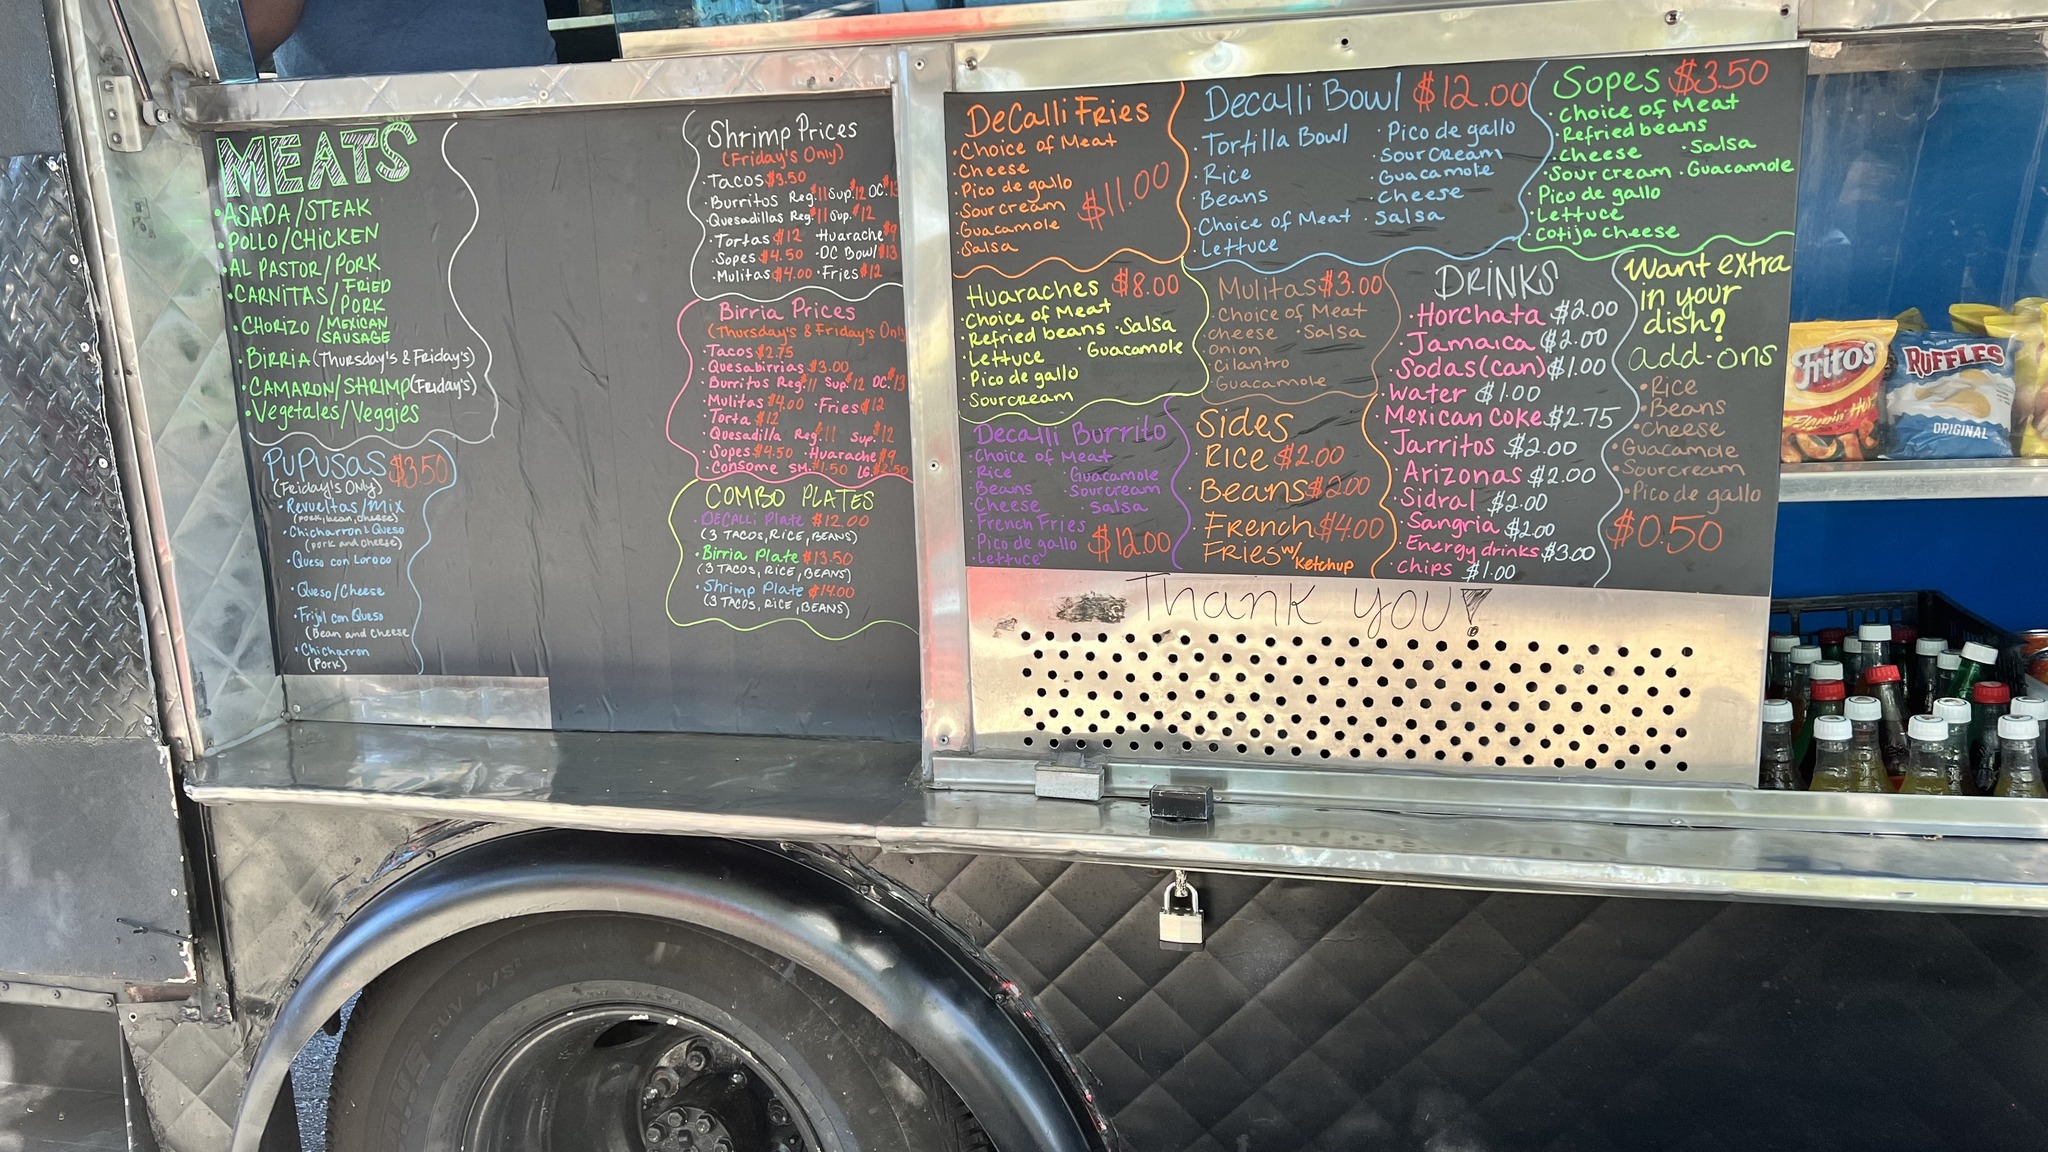 MEATS
• ASADA/STEAK
• POLLO/CHICKEN
• AL PASTOR/PORK
• CARNITAS/FRIED PORK
• CHORIZO/MEXICAN SAUSAGE
• BIRRIA (Thursday's & Friday's)
• CAMARON/SHRIMP (Friday's)
• Vegetales/Veggies
PUPUSAS $3.50
(Friday's Only)
• Revueltas/Mix
(Pork, bean, cheese)
• Chicharron & Queso
(pork and cheese)
• Queso con Loroco
• Queso/Cheese
• Frijol con Queso
(Bean and cheese
• Chicharron
(Pork)
Shrimp Prices
(Friday's Only)
• Tacos $3.50
• Burritos Reg. $11 Sup. $12 DC.
• Quesadillas Reg. $11 Sup. $12
• Tortas $12 Huarache $9
• Sopes $4.50 • DC Bowl $13
• Mulitas $4.00 • Fries $12
Birria Prices
(Thursday's & Friday's Only
• Tacos $2.75
• Quesabirrias $3.00
• Burritos Reg. $11 Sup. $12 DC. $13
• Mulitas $4.00 • Fries $12
• Torta $12
• Quesadilla Reg. $11 Sup. $12
• Sopes $4.50 • Huarache $9
• Consome SM. $1.50 LG. $2.50
COMBO PLATES
• DECALLI Plate $12.00
(3 TACOS, RICE, BEANS)
• Birria Plate $13.50
(3 TACOS, RICE, BEANS)
• Shrimp Plate $14.00
(3 TACOS, RICE, BEANS)
DeCalli Fries
• Choice of Meat
• Cheese
• Pico de gallo
• Sour cream
• Guacamole
• Salsa
$11.00
Decalli Bowl $12.00
• Tortilla Bowl • Pico de gallo
• Rice • Sour Cream
• Beans • Guacamole
• Choice of Meat • Cheese
• Lettuce • Salsa
Sopes $3.50
• Choice of Meat
• Refried beans
• Cheese • Salsa
• Sour cream • Guacamole
• Pico de gallo
• Lettuce
• Cotija cheese
Huaraches $8.00
• Choice of Meat
• Refried beans • Salsa
• Lettuce • Guacamole
• Pico de gallo
• Sourcream
Mulitas $3.00
• Choice of Meat
• Cheese • Salsa
• Onion
• Cilantro
• Guacamole
Decalli Burrito
• Choice of Meat
• Rice Guacamole
• Beans • Sourcream
• Cheese • Salsa
• French Fries
• Pico de gallo
• Lettuce
$12.00
Sides
• Rice $2.00
• Beans $2.00
• French Fries w/ Ketchup $4.00
DRINKS
• Horchata $2.00
• Jamaica $2.00
• Sodas (can) $1.00
• Water $1.00
• Mexican Coke $2.75
• Jarritos $2.00
• Arizonas $2.00
• Sidral $2.00
• Sangria $2.00
• Energy drinks $3.00
• Chips $1.00
Want extra
in your
dish?
add-ons
• Rice
• Beans
• Cheese
• Guacamole
• Sourcream
• Pico de gallo
$0.50
Thank you!
Fritos
Flamin' Hot
RUFFLES
ORIGINAL